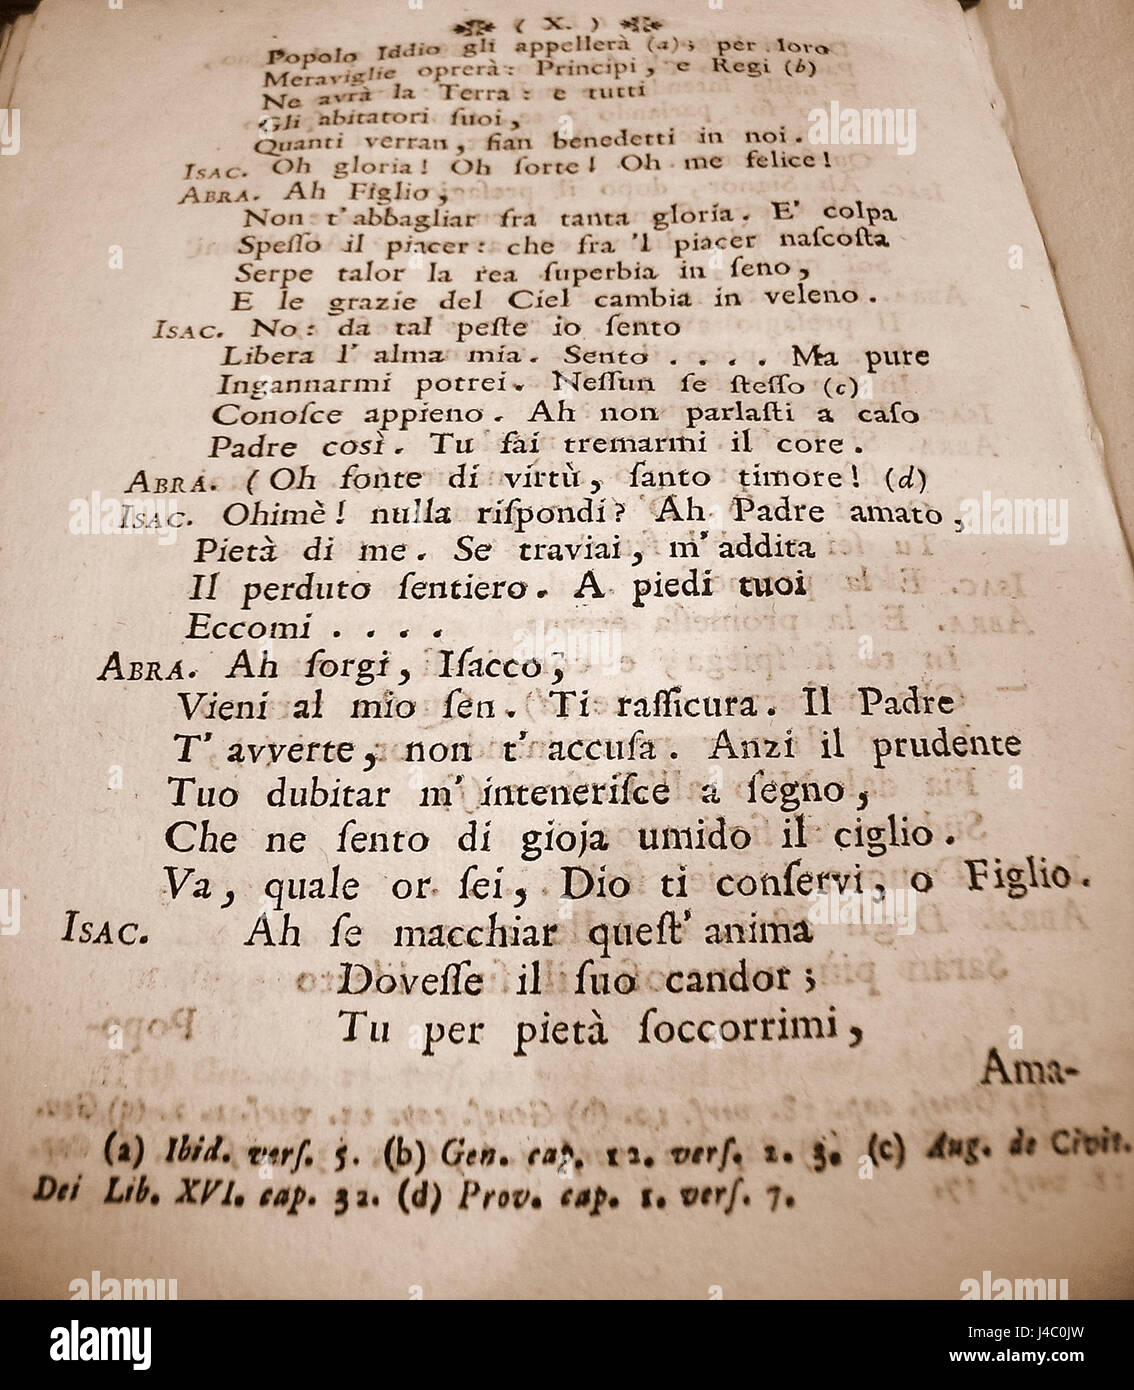 ( X. )
Popolo Iddio gli appellerà (a); per loro
Meraviglie oprerà: Principi, e Regi (b)
Ne avrà la Terra: e tutti
Gli abitatori ſuoi,
Quanti verran, fian benedetti in noi.
ISAC. Oh gloria! Oh ſorte! Oh me felice!
ABRA. Ah Figlio,
Non t'abbagliar fra tanta gloria. E' colpa
Speſſo il piacer: che fra 'l piacer naſcoſta
Serpe talor la rea ſuperbia in ſeno,
E le grazie del Ciel cambia in veleno.
ISAC. No: da tal peſte io ſento
Libera l' alma mia. Sento . . . . Ma pure
Ingannarmi potrei. Neſſun ſe ſteſſo (c)
Conoſce appieno. Ah non parlaſti a caſo
Padre così. Tu fai tremarmi il core.
ABRA. (Oh fonte di virtù, ſanto timore! (d)
ISAC. Ohimè! nulla riſpondi? Ah Padre amato,
Pietà di me. Se traviai, m'addita
Il perduto ſentiero. A piedi tuoi
Eccomi . . . .
ABRA. Ah ſorgi, Iſacco;
Vieni al mio ſen. Ti raſſicura. Il Padre
T' avverte, non t' accuſa. Anzi il prudente
Tuo dubitar m' inteneriſce a ſegno,
Che ne ſento di gioja umido il ciglio.
Va, quale or ſei, Dio ti conſervi, o Figlio.
ISAC. Ah ſe macchiar queſt' anima
Doveſſe il ſuo candor;
Tu per pietà ſoccorrimi,
Ama-
(a) Ibid. verſ. 5. (b) Gen. cap. 12. verſ. 2. 3. (c) Aug. de Civit.
Dei Lib. XVI. cap. 32. (d) Prov. cap. 1. verſ. 7.
alamy
Image ID: J4C0JW
www.alamy.com